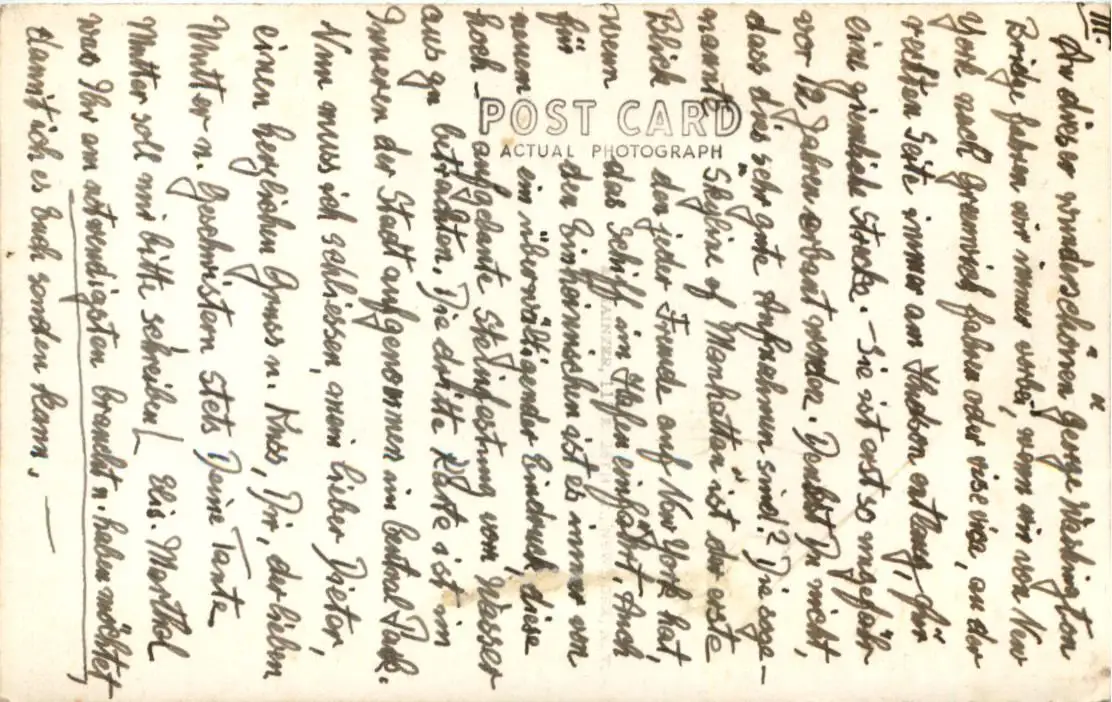 III.
An dieser wunderschönen George Washington
Bridge fahren wir immer vorbei, wenn wir von New
York nach Greenwich fahren oder vise vica, an der
rechten Seite immer am Hudson entlang, für
eine ziemliche Strecke. – Sie ist erst so ungefähr
vor 12 Jahren erbaut worden. Denkst Du nicht,
dass dies sehr gute Aufnahmen sind? Die soge-
nannte "Skyline of Manhattan" ist der erste
Blick den jeder Fremde auf New York hat,
wenn das Schiff im Hafen einfährt. Auch
für den Einheimischen ist es immer von
neuem ein überwältigender Eindruck, diese
hoch-aufgebaute Steinfastung vom Wasser
aus zu betrachten. Die dritte Karte ist im
Inneren der Stadt aufgenommen im Central Park.
Nun muss ich schliessen, mein lieber Dieter,
einen herzlichen Gruss u. Kuss, Dir, der lieben
Mutter u. Geschwistern stets Deine Tante
Elis. Marthal
Mutter soll mir bitte schreiben
was Ihr am notwendigsten braucht u. haben möchtet
damit ich es Euch senden kann. —
POST CARD
ACTUAL PHOTOGRAPH
MAINZER, 11